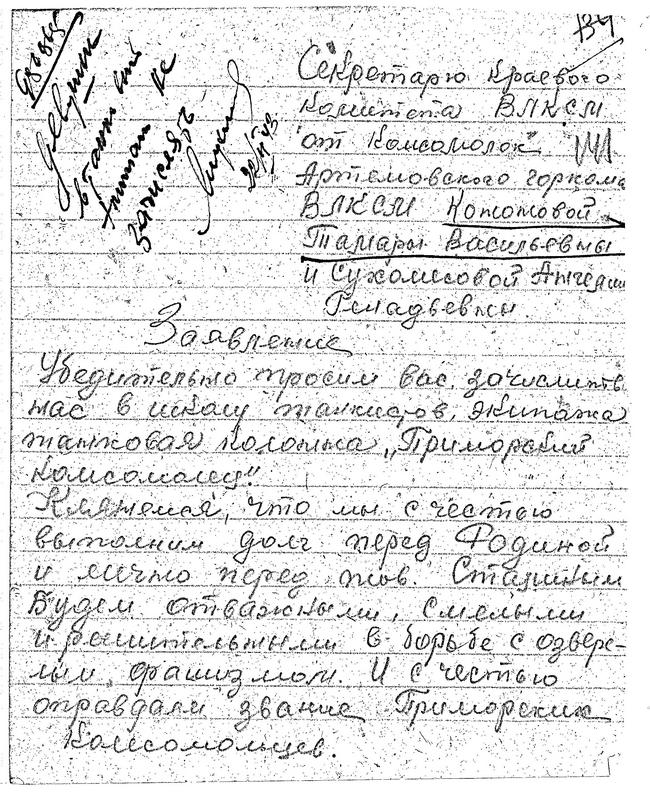 134
девушек
в танкисты
не
зачислять
22/II 43
Секретарю Краевого
Комитета ВЛКСМ
от Комсомолок
Артемовского горкома
ВЛКСМ Кототовой
Тамары Васильевны
и Сухомисовой
Генадьевны.
Заявление
Убедительно просим вас, зачислить
нас в школу танкистов, экипажа
танковая колонна „Приморский
Комсомолец".
Клянемся, что мы с честью
выполним долг перед Родиной
и лично перед тов. Сталиным
Будем отважными, смелыми
и решительными в борьбе с озвере-
лым фашизмом. И с честью
оправдали звание Приморских
Комсомольцев.